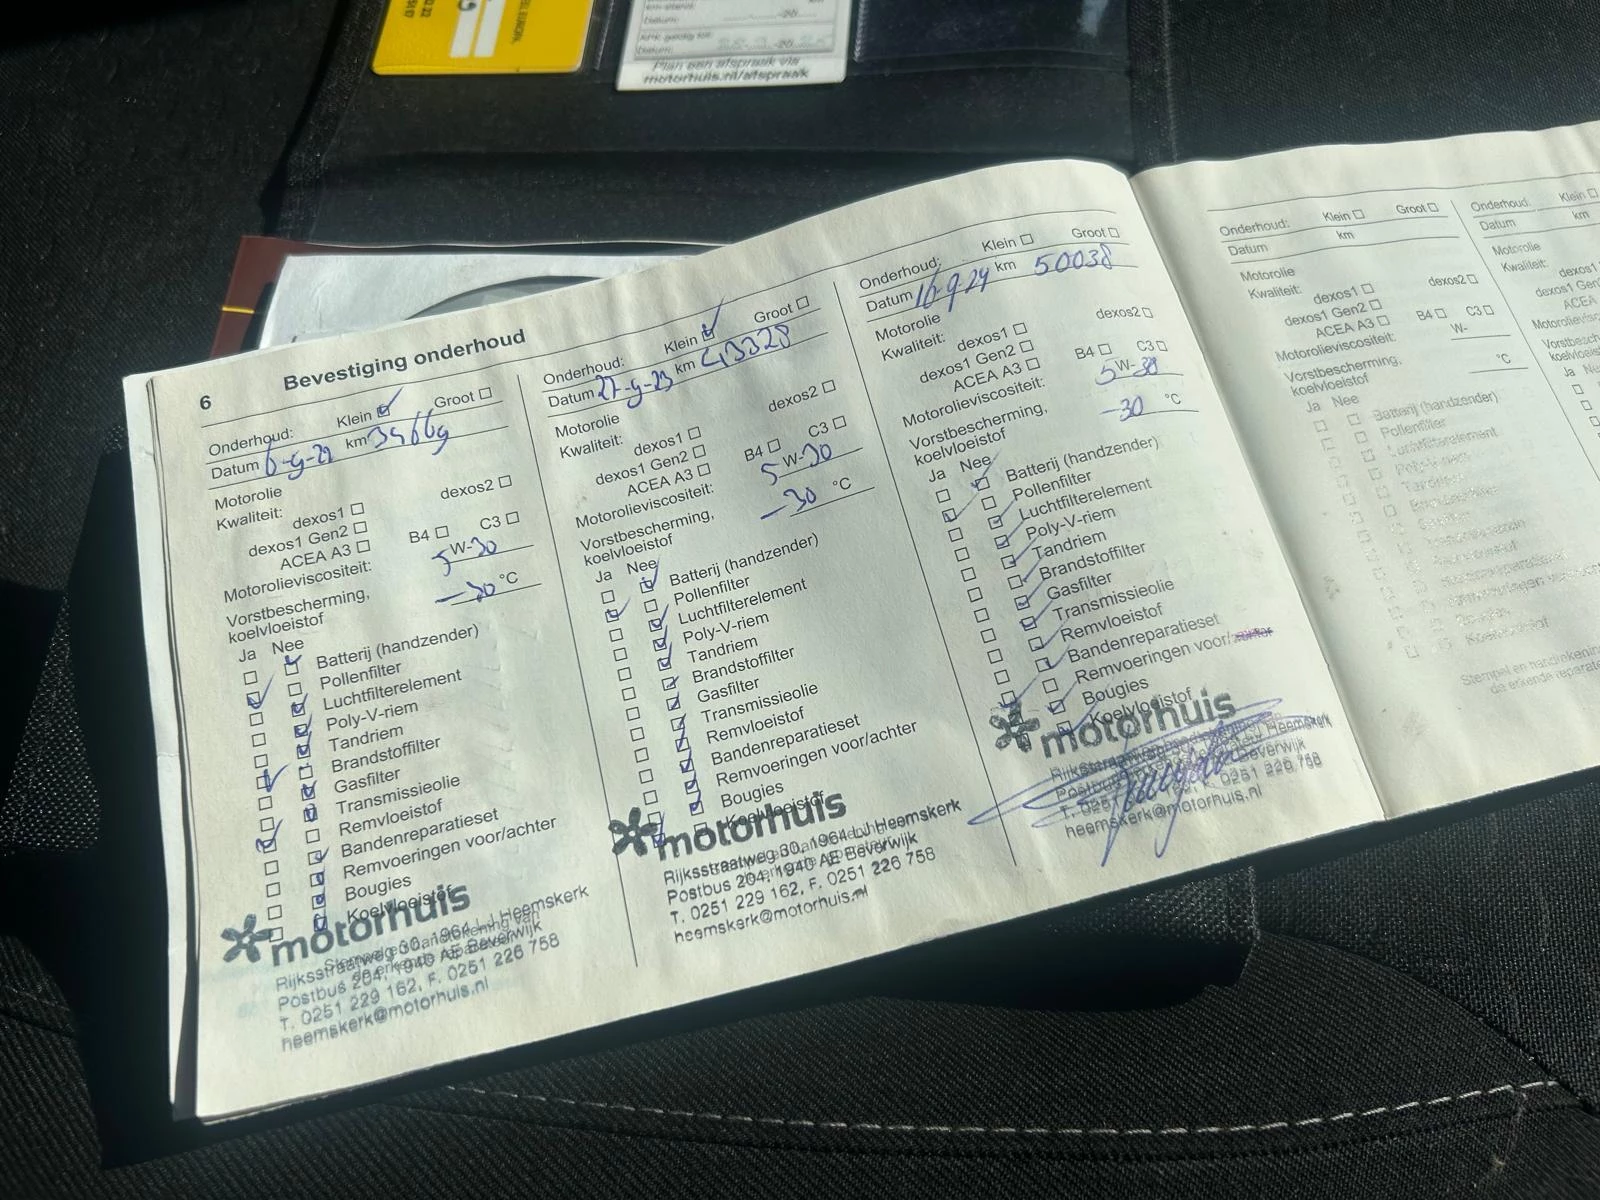 Plan een afspraak via
motorhuis.nl/afspraak
6 Bevestiging onderhoud
Onderhoud: Klein Groot
Datum 6-9-22 km
Motorolie
Kwaliteit: dexos1 dexos2
dexos1 Gen2
ACEA A3 B4 C3
Motorolieviscositeit: 5W-30
Vorstbescherming,
koelvloeistof -30 °C
Ja Nee
Batterij (handzender)
Pollenfilter
Luchtfilterelement
Poly-V-riem
Tandriem
Brandstoffilter
Gasfilter
Transmissieolie
Remvloeistof
Bandenreparatieset
Remvoeringen voor/achter
Bougies
Koelvloeistof
motorhuis
Rijksstraatweg 30, 1964 LJ Heemskerk
Postbus 204, 1940 AE Beverwijk
T. 0251 229 162, F. 0251 226 758
heemskerk@motorhuis.nl
Onderhoud: Klein Groot
Datum 27-9-23 km 43328
Motorolie
Kwaliteit: dexos1 dexos2
dexos1 Gen2
ACEA A3 B4 C3
Motorolieviscositeit: 5W-30
Vorstbescherming,
koelvloeistof -30 °C
Ja Nee
Batterij (handzender)
Pollenfilter
Luchtfilterelement
Poly-V-riem
Tandriem
Brandstoffilter
Gasfilter
Transmissieolie
Remvloeistof
Bandenreparatieset
Remvoeringen voor/achter
Bougies
Koelvloeistof
motorhuis
Rijksstraatweg 30, 1964 LJ Heemskerk
Postbus 204, 1940 AE Beverwijk
T. 0251 229 162, F. 0251 226 758
heemskerk@motorhuis.nl
Onderhoud: Klein Groot
Datum 16-9-24 km 50038
Motorolie
Kwaliteit: dexos1 dexos2
dexos1 Gen2
ACEA A3 B4 C3
Motorolieviscositeit: 5W-30
Vorstbescherming,
koelvloeistof -30 °C
Ja Nee
Batterij (handzender)
Pollenfilter
Luchtfilterelement
Poly-V-riem
Tandriem
Brandstoffilter
Gasfilter
Transmissieolie
Remvloeistof
Bandenreparatieset
Remvoeringen voor/achter
Bougies
Koelvloeistof
motorhuis
Rijksstraatweg 30, 1964 LJ Heemskerk
Postbus 204, 1940 AE Beverwijk
T. 0251 229 162, F. 0251 226 758
heemskerk@motorhuis.nl
Onderhoud: Klein Groot
Datum km
Motorolie
Kwaliteit: dexos1 dexos2
dexos1 Gen2
ACEA A3 B4 C3
Motorolieviscositeit: W-
Vorstbescherming,
koelvloeistof °C
Ja Nee
Batterij (handzender)
Pollenfilter
Luchtfilterelement
Poly-V-riem
Tandriem
Koelvloeistof
Onderhoud: Klein
Datum km
Motorolie
Kwaliteit: dexos1
dexos1 Gen2
ACEA